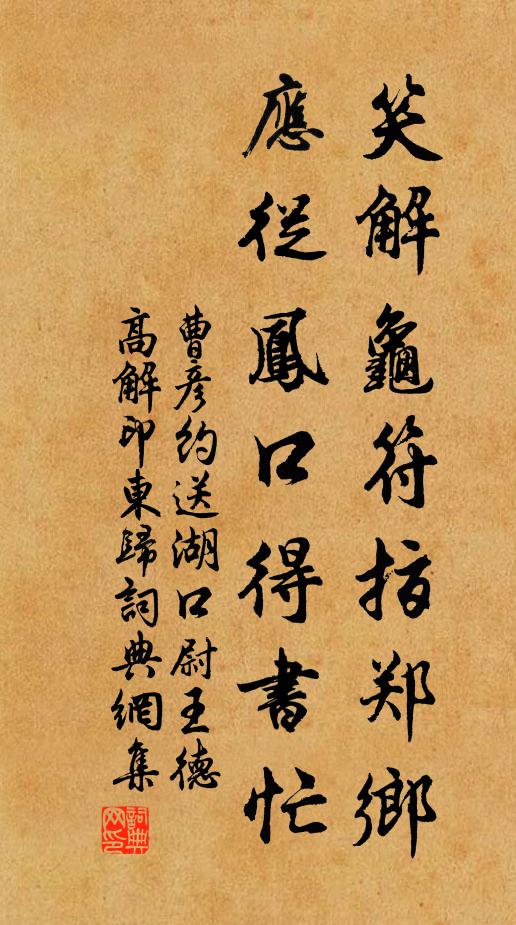 笑解龜符指郑鄉
應從鳳口得書忙
曹彦約送湖口尉王德
高解印東歸詞典網集
詞典网印